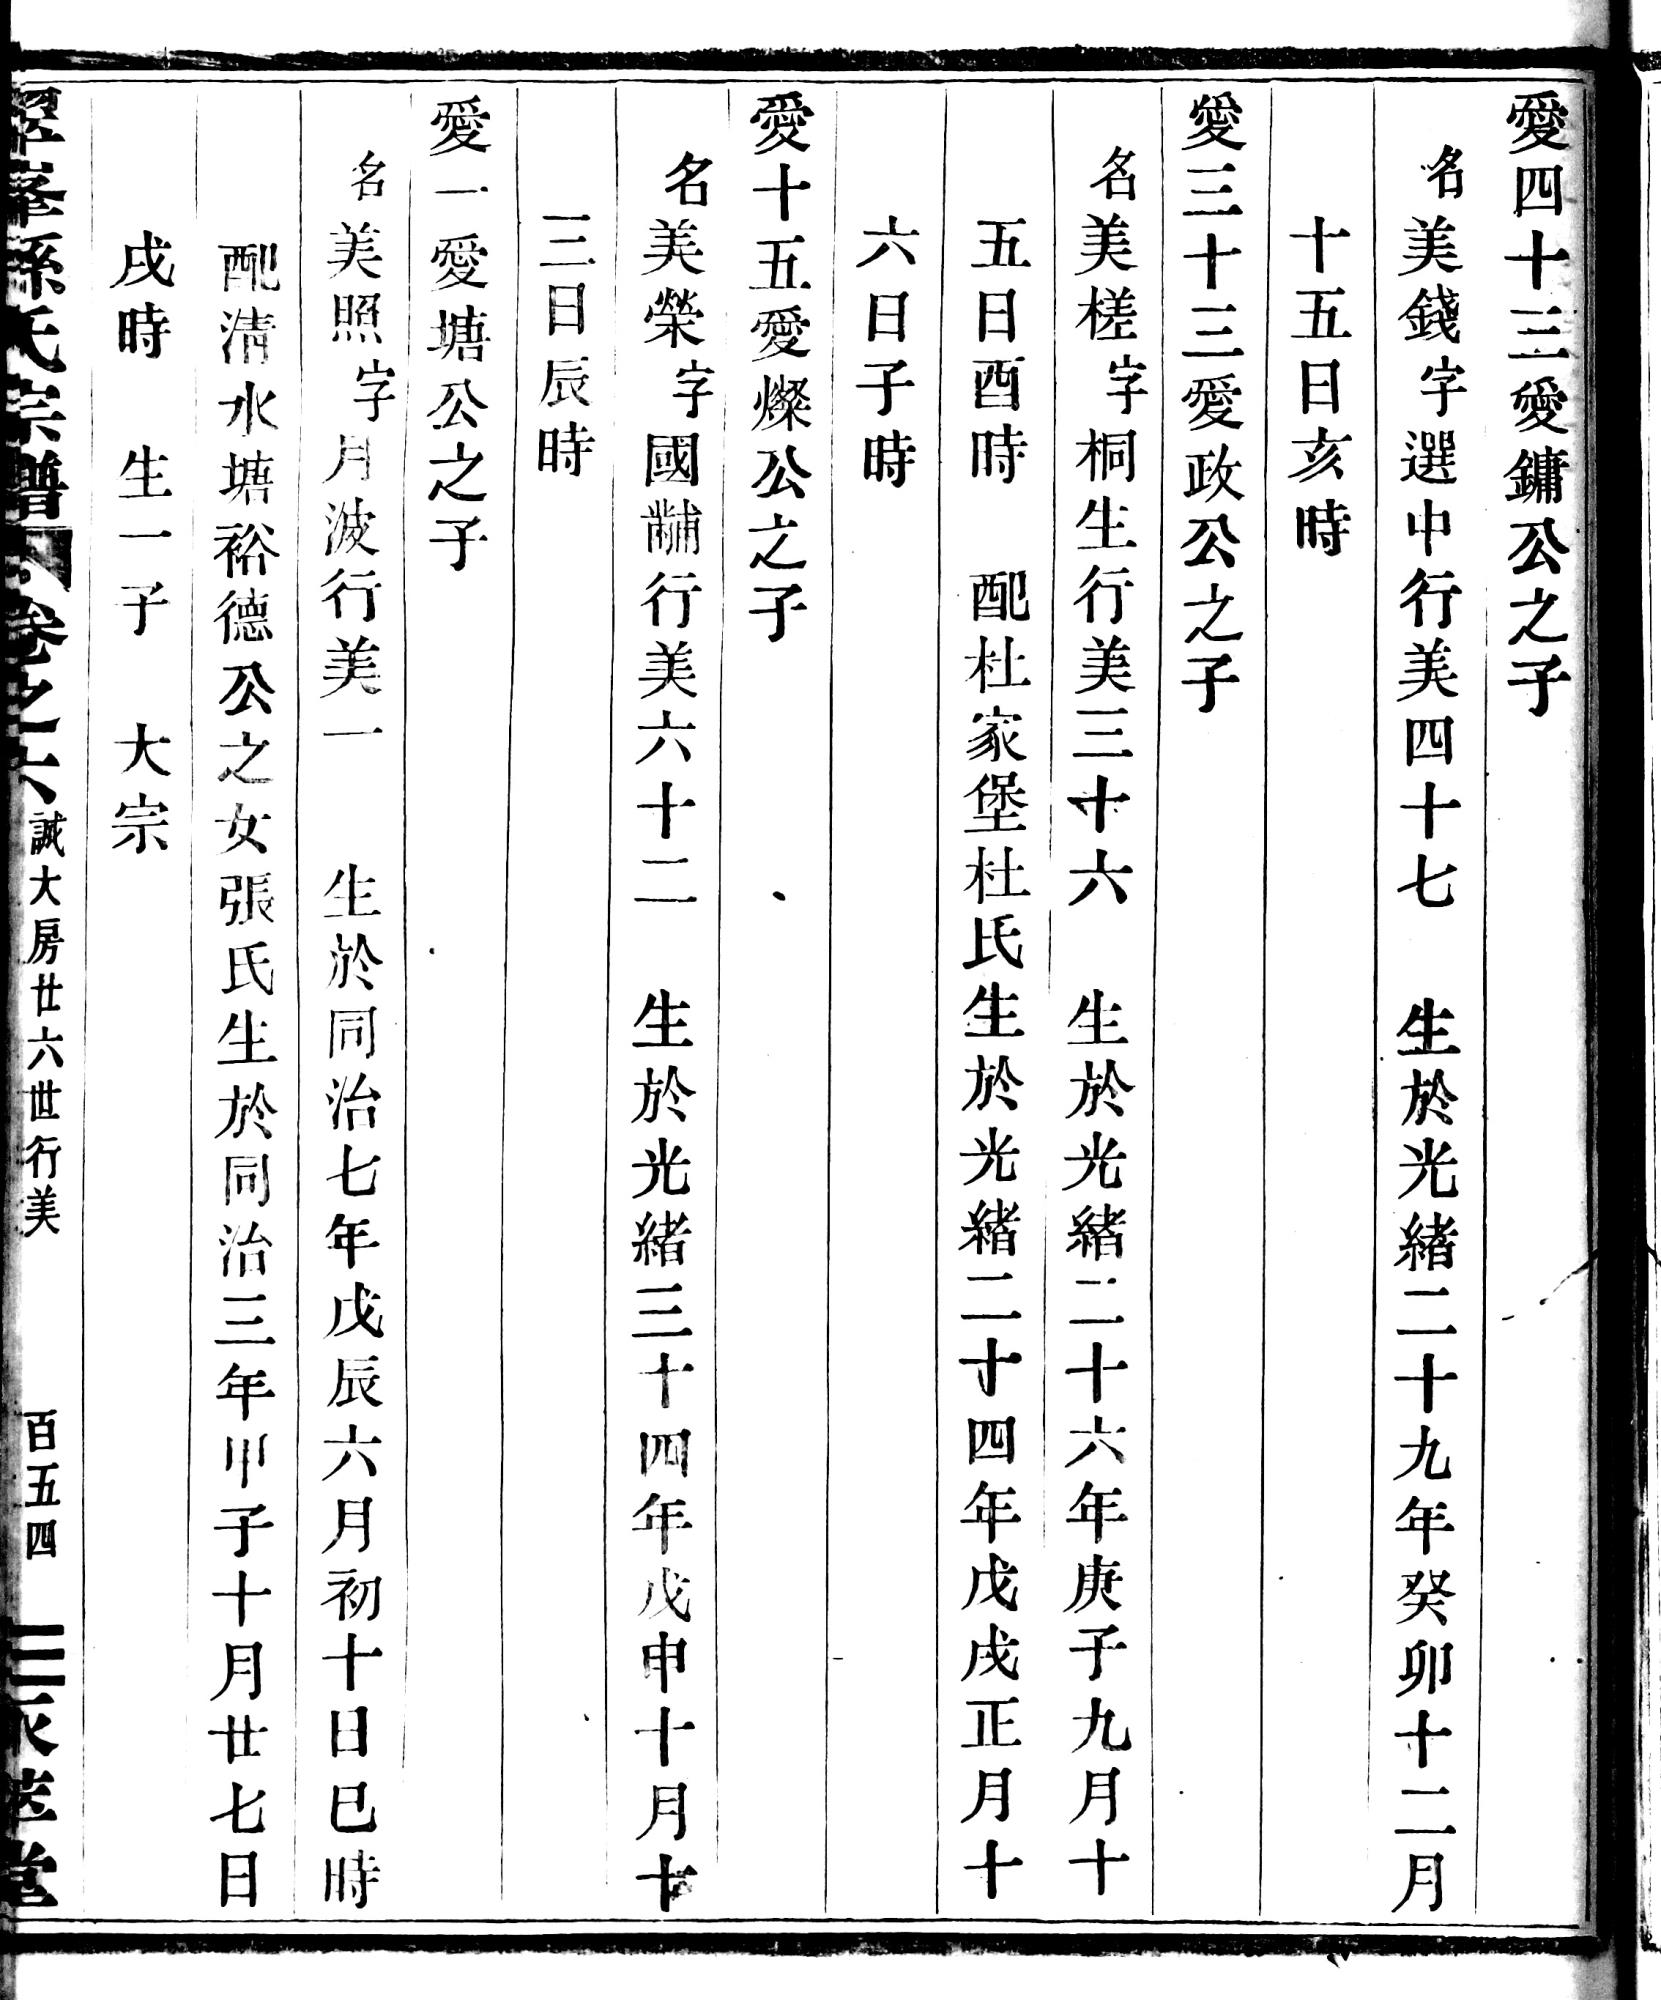 愛四十三愛鏞公之子
名美錢字選中行美四十七　生於光緒二十九年癸卯十二月
十五日亥時
愛三十三愛政公之子
名美槎字桐生行美三十六　生於光緒二十六年庚子九月十
五日酉時　配杜家堡杜氏生於光緒二十四年戊戌正月十
六日子時
愛十五愛燦公之子
名美榮字國黼行美六十二　生於光緒三十四年戊申十月十
三日辰時
愛一愛塘公之子
名美照字月波行美一　生於同治七年戊辰六月初十日巳時
配清水塘裕德公之女張氏生於同治三年甲子十月廿七日
戌時　生一子　大宗
孫氏宗譜　卷之六　誠大房廿六世行美　百五四　堂